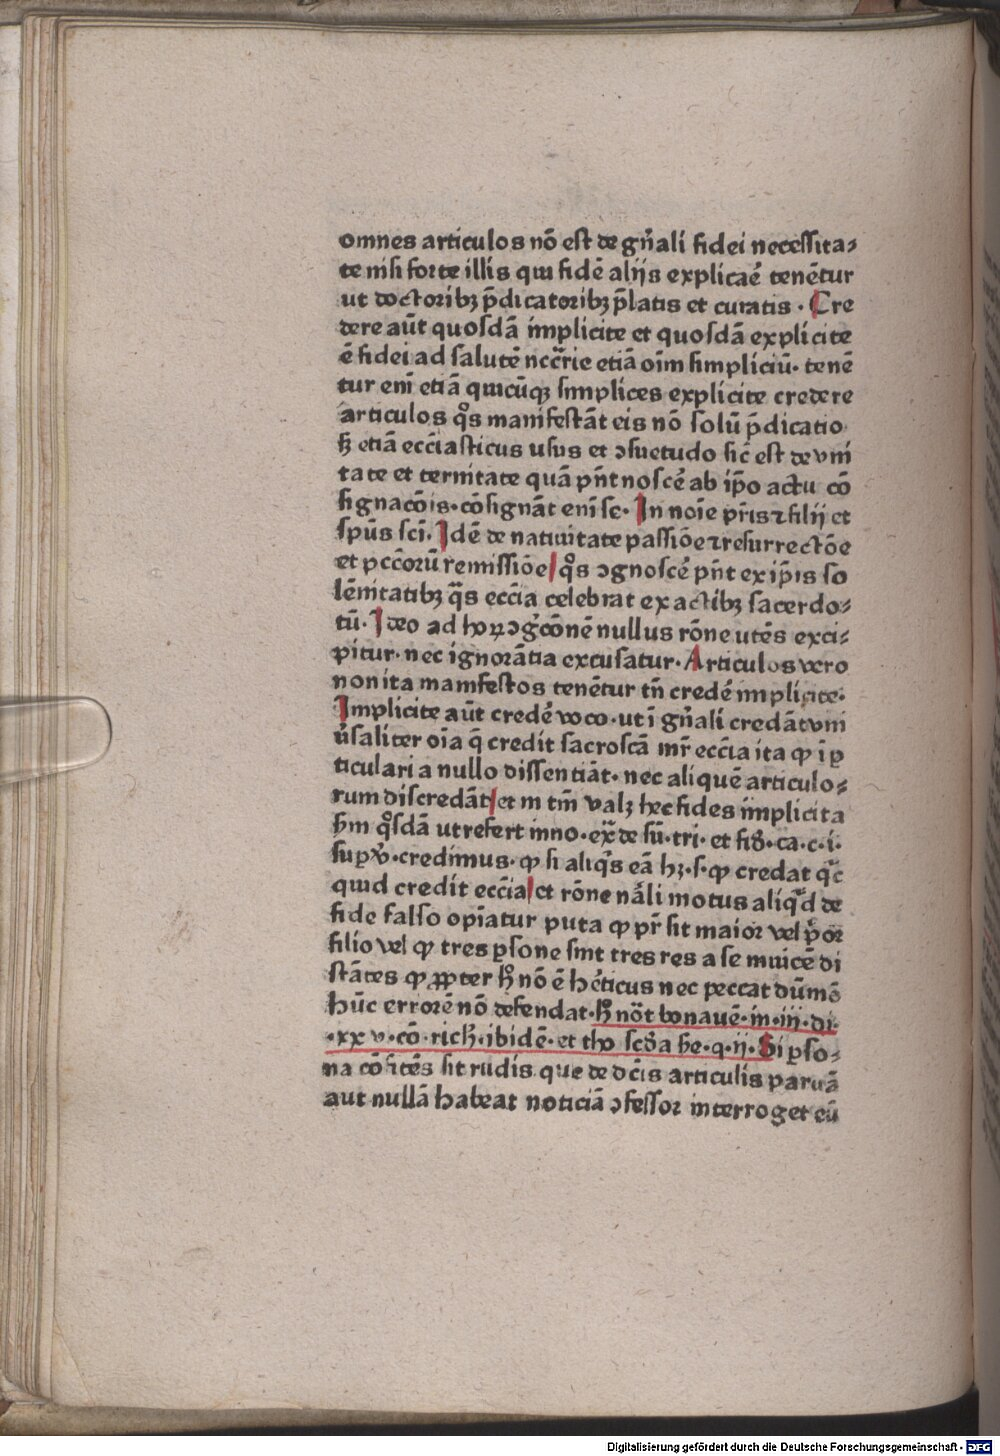 omnes articulos nō est de gn̄ali fidei necessita⸗
te nisi forte illis qui fidē alijs explicaē tenētur
ut doctoribꝫ p̄dicatoribꝫ p̄latis et curatis · Cre
dere aūt quosdā implicite et quosdā explicite
ē fidei ad salutē ncc̄rie etiā oīm simpliciū· tenē
tur enī etiā quicūqꝫ simplices explicite credere
articulos qͦs manifestāt eis nō solū p̄dicatio
ꝫ etiā eccīasticus usus et ꝯsuetudo sic̄ est de vni
tate et ternitate quā pn̄t noscē ab ip̄o actu cō
signacōis·cōsignāt enī se· In noīe pr̄is ⁊ filij et
spūs scī· Idē de natiuitate passiōe ⁊ resurrectōe
et pccōrū remissiōe qͦs ꝯgnoscē pn̄t ex ip̄is so
lēnitatibꝫ qͣs eccīa celebrat ex actibꝫ sacerdo⸗
tū· Ideo ad hoꝝ ꝯgͦcōnē nullus rōne utēs exci⸗
pitur· nec ignorātia excusatur· Articulos vero
non ita manifestos tenētur tn̄ credē implicite·
Implicite aūt credē voco· ut ī gn̄ali credāt vni
ūsaliter oīa q̄ credit sacroscā mr̄ eccīa ita ꝙ ī ꝑ
ticulari a nullo dissentiāt· nec aliquē articulo⸗
rum discredāt et in tm̄ valꝫ hec fides implicita
ẜm qͦsdā ut refert inno· ex̄ de sū· tri· et fid̄· ca· c· i·
suꝑ v̄· credimus· ꝙ si aliqͥs eā hꝫ· s· ꝙ credat qͥc
quid credit eccīa et rōne nāli motus aliqͥd de
fide falso opīatur puta ꝙ pr̄ sit maior vel pͥor
filio vel ꝙ tres ꝑsone sint tres res a se inuicē di
stātes ꝙ ꝓpter hͦ nō ē hēticus nec peccat dūmō
hūc errorē nō defendat· hͦ nōt bonauē· in· iij· di·
·xxv· cō· rich· ibidē· et tho scd̄a ẜe· q· ij· Si ꝑso⸗
na cōfitēs sit rudis que de dc̄is articulis paruā
aut nullā habeat noticiā ꝯfessor interroget eū
Digitalisierung gefördert durch die Deutsche Forschungsgemeinschaft - DFG